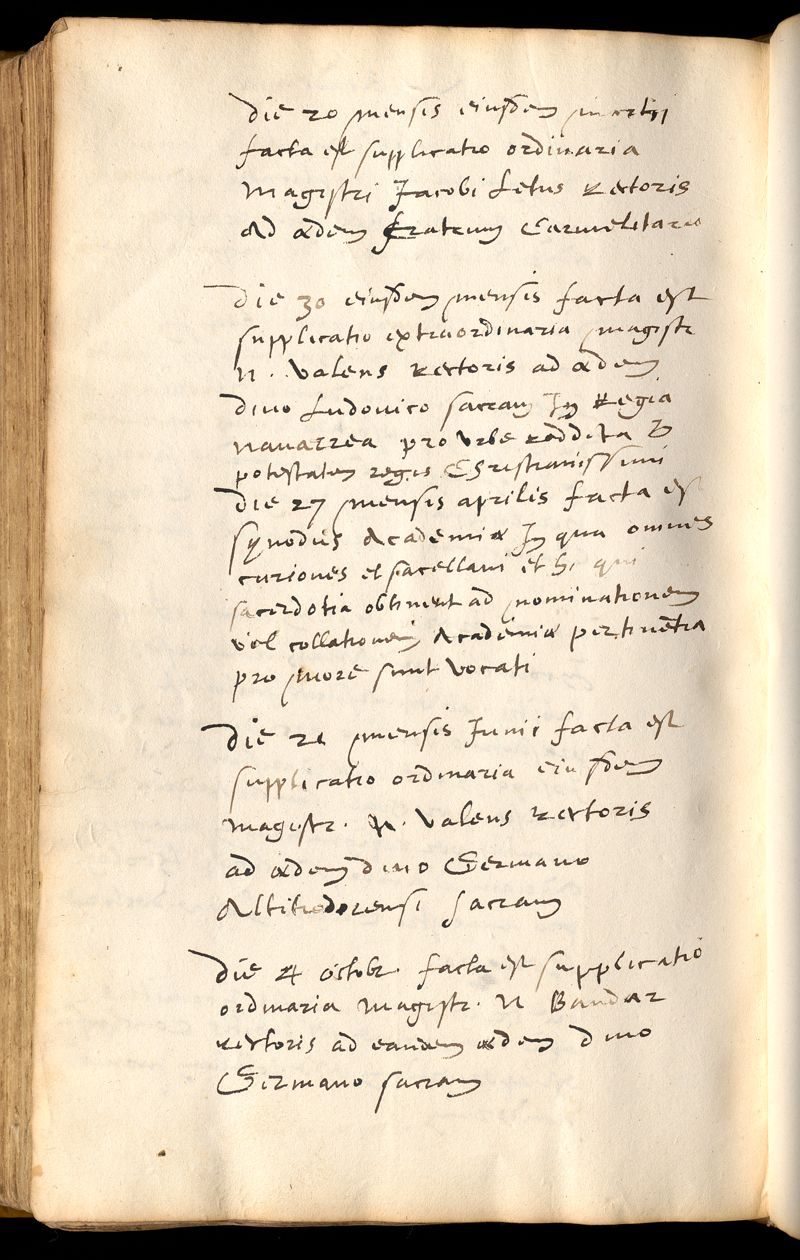 Die 20 mensis eiusdem martii
facta est supplicatio ordinaria
Magistri Jacobi Letus Rectoris
Ad ædem fratrum Carmelitarū
Die 30 eiusdem mensis facta est
supplicatio extraordinaria magistr
N. Valens Rectoris ad ædem
divo Ludovico sacram In Regia
Navarrea pro Urbe reddita
potestatem regis Christianissimi
Die 27 mensis aprilis facta est
synodus Academiæ In qua omnes
curiones et sacellani et hi qui
sacerdotia obtinent ad nominationem
vel collationem Academiæ pertinētia
pro more sunt Vocati
Die 21 mensis Junii facta est
supplicatio ordinaria eiusdem
magistr. N. Valens Rectoris
ad ædem divo Germano
Altitiodorensi sacram
Die 4 octobr. facta est supplicatio
ordinaria Magistr. N
Rectoris ad eandem ædem divo
Germano sacram